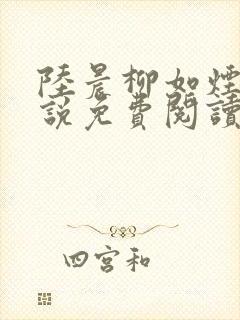 陸晨柳如煙
說免費閱讀
四宮和